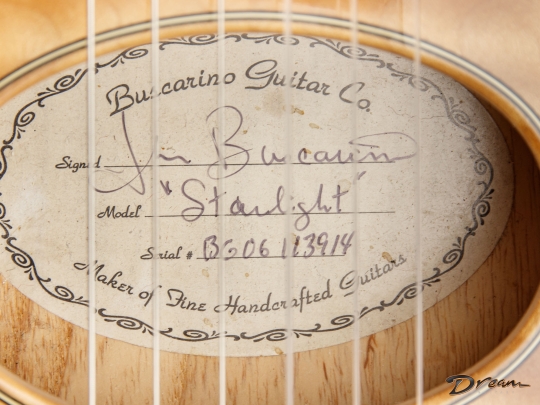 Buscarino Guitar Co.
Signed Jn Buscarino
Model "Starlight"
Serial # BG06113914
Maker of Fine Handcrafted Guitars
Dream